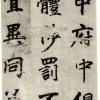 中府中俱
體陟罰
宜異同